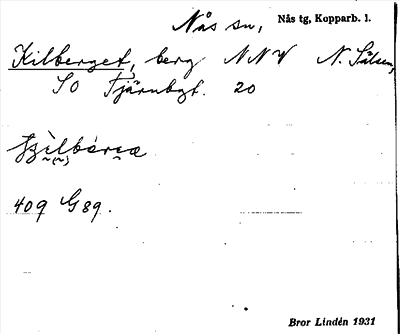 Nås sn,
Nås tg, Kopparb. l.
Kilberget, berg NNV N. Sälsen,
SO Tjärnbgt. 20
409 G 89.
Bror Lindén 1931